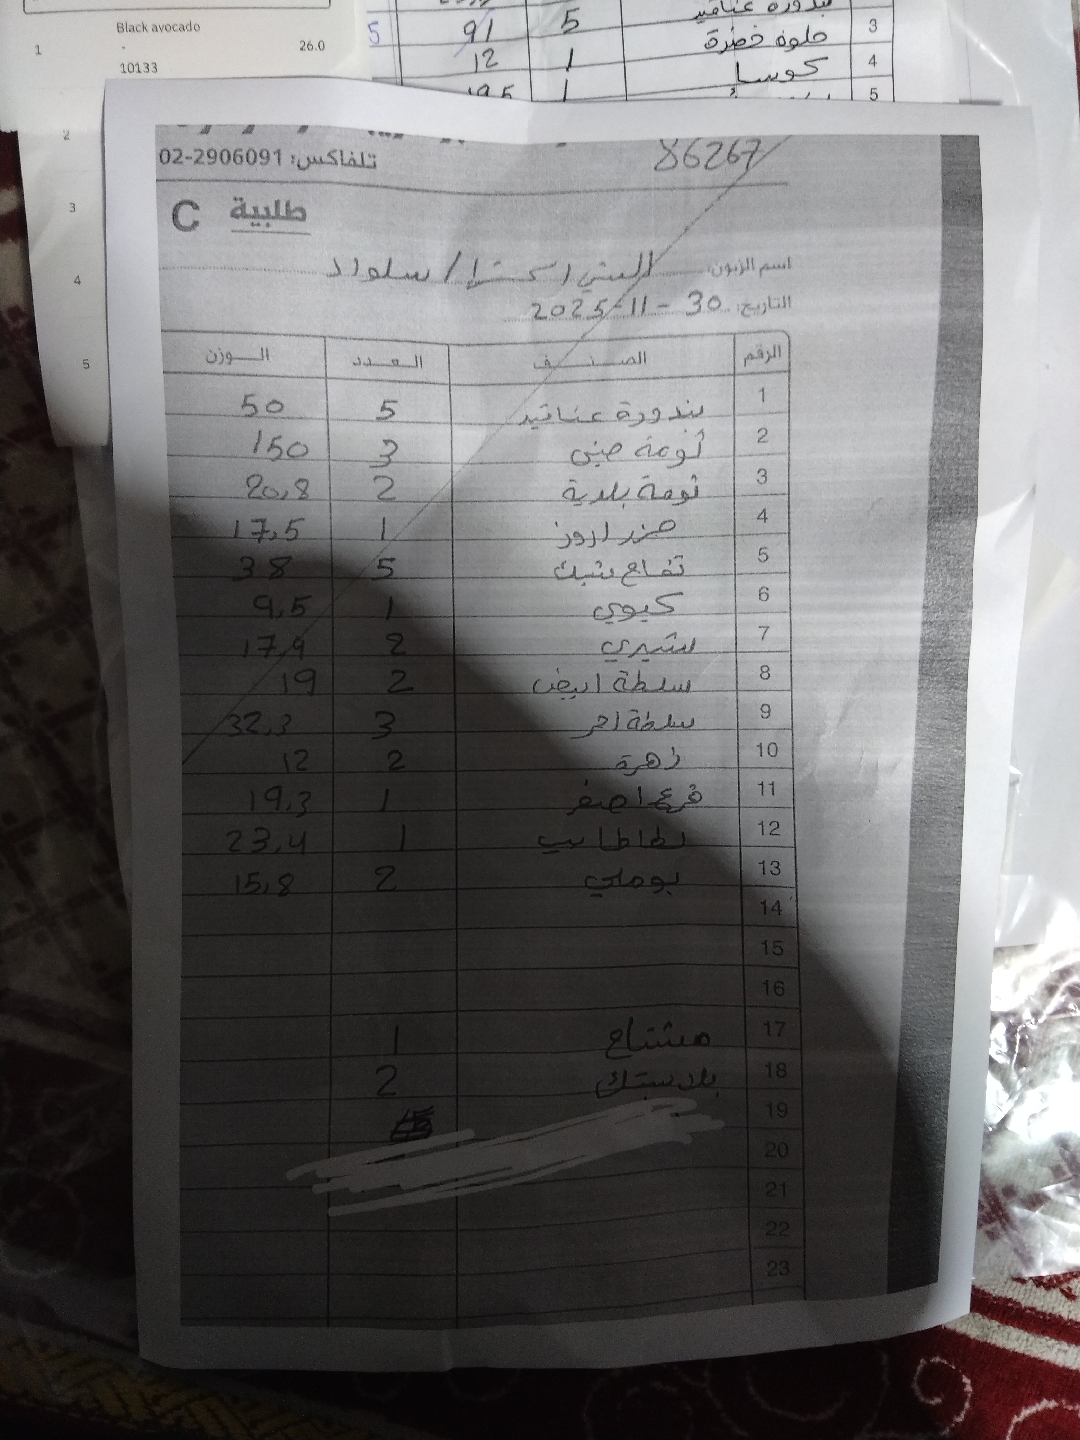 Black avocado
1 - 26.0
10133
2
3
4
5
5 91 5 حلوة خضرة 3
12 1 كوسا 4
19.5 1 5
تلفاكس: 02-2906091
86267
طلبية C
اسم الزبون: السني اكسترا / سلواد
التاريخ: 30-11-2025
الرقم الصنف العدد الوزن
1 بندورة عناقيد 5 50
2 ثومة صيني 3 150
3 ثومة بلدية 2 20,8
4 1 17,5
5 تفاح شبك 5 38
6 كيوي 1 9,5
7 شيري 2 17,9
8 سلطة ابيض 2 19
9 سلطة احمر 3 32,3
10 زهرة 2 12
11 قرع اصفر 1 19,3
12 بطاطا بيبي 1 23,4
13 بوملي 2 15,8
14
15
16
17 مشتاح 1
18 بلاستك 2
19
20
21
22
23